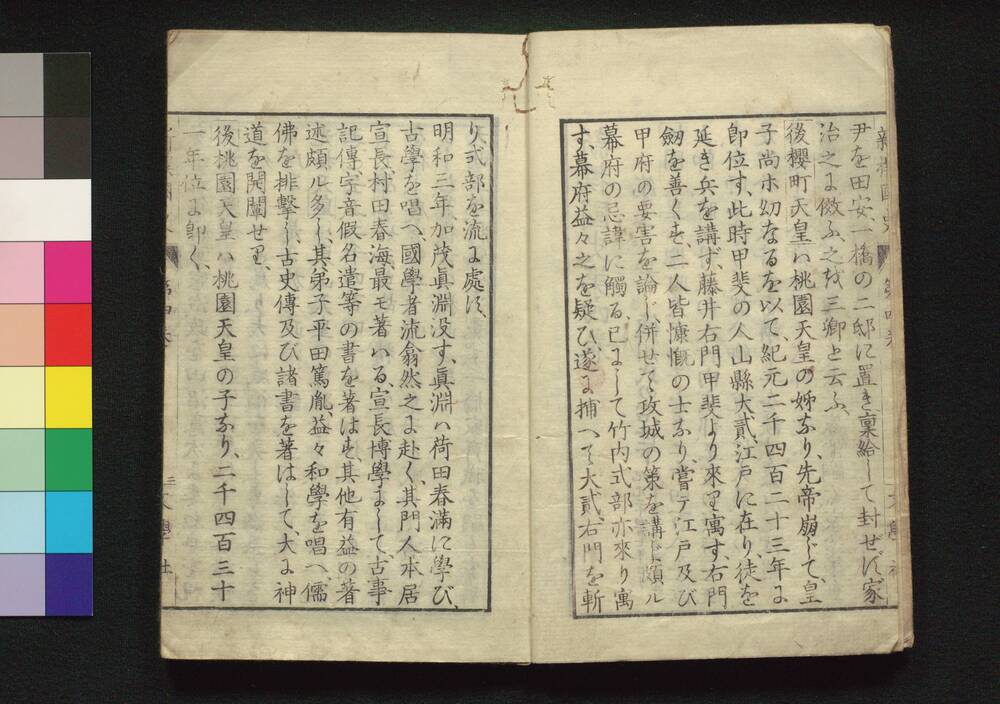 尹を田安、一橋の二邸に置き稟給して封ぜず、家
治之に傚ふ、之を三卿と云ふ、
後櫻町天皇ハ桃園天皇の姊なり、先帝崩じて、皇
子尚ホ幼なるを以て、紀元二千四百二十三年に
卽位す、此時甲斐の人山縣大貳、江戸に在り、徒を
延き兵を講ず、藤井右門甲斐より來り寓す、右門
劒を善くす、二人皆慷慨の士なり、嘗テ江戸及び
甲府の要害を論じ、併せて攻城の策を講じ、頗ル
幕府の忌諱に觸る、已にして竹内式部亦來り寓
す、幕府益々之を疑ひ、遂に捕へて大貳右門を斬
り式部を流に處す、
明和三年、加茂眞淵没す、眞淵ハ荷田春滿に學び、
古學を唱へ、國學者流翕然之に赴く、其門人本居
宣長、村田春海最モ著ハる、宣長博學にして古事
記傳、字音假名遣等の書を著はす、其他有益の著
述頗ル多し、其弟子平田篤胤益々和學を唱へ、儒
佛を排擊し、古史傳及び諸書を著はして、大に神
道を開闡せり、
後桃園天皇ハ桃園天皇の子なり、二千四百三十
一年位に卽く、